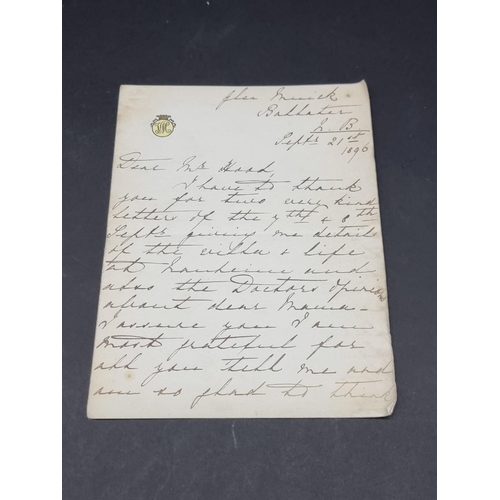 Glen Muick
Ballater
N. B.
Septr 21st
1896
Dear Mr Hood,
I have to thank
you for two very kind
letters of the 7th & 8th
Septr giving me details
of the villa & life
at and
also the Doctors Opinion
about dear Mama-
I assure you I am
most grateful for
all you tell me and
am so glad to think